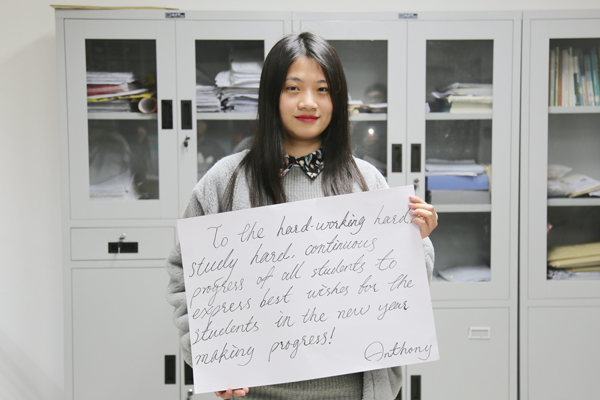 To the hard-working hard
study hard, continuous
progress of all students to
express best wishes for the
students in the new year
making progress!
Anthony